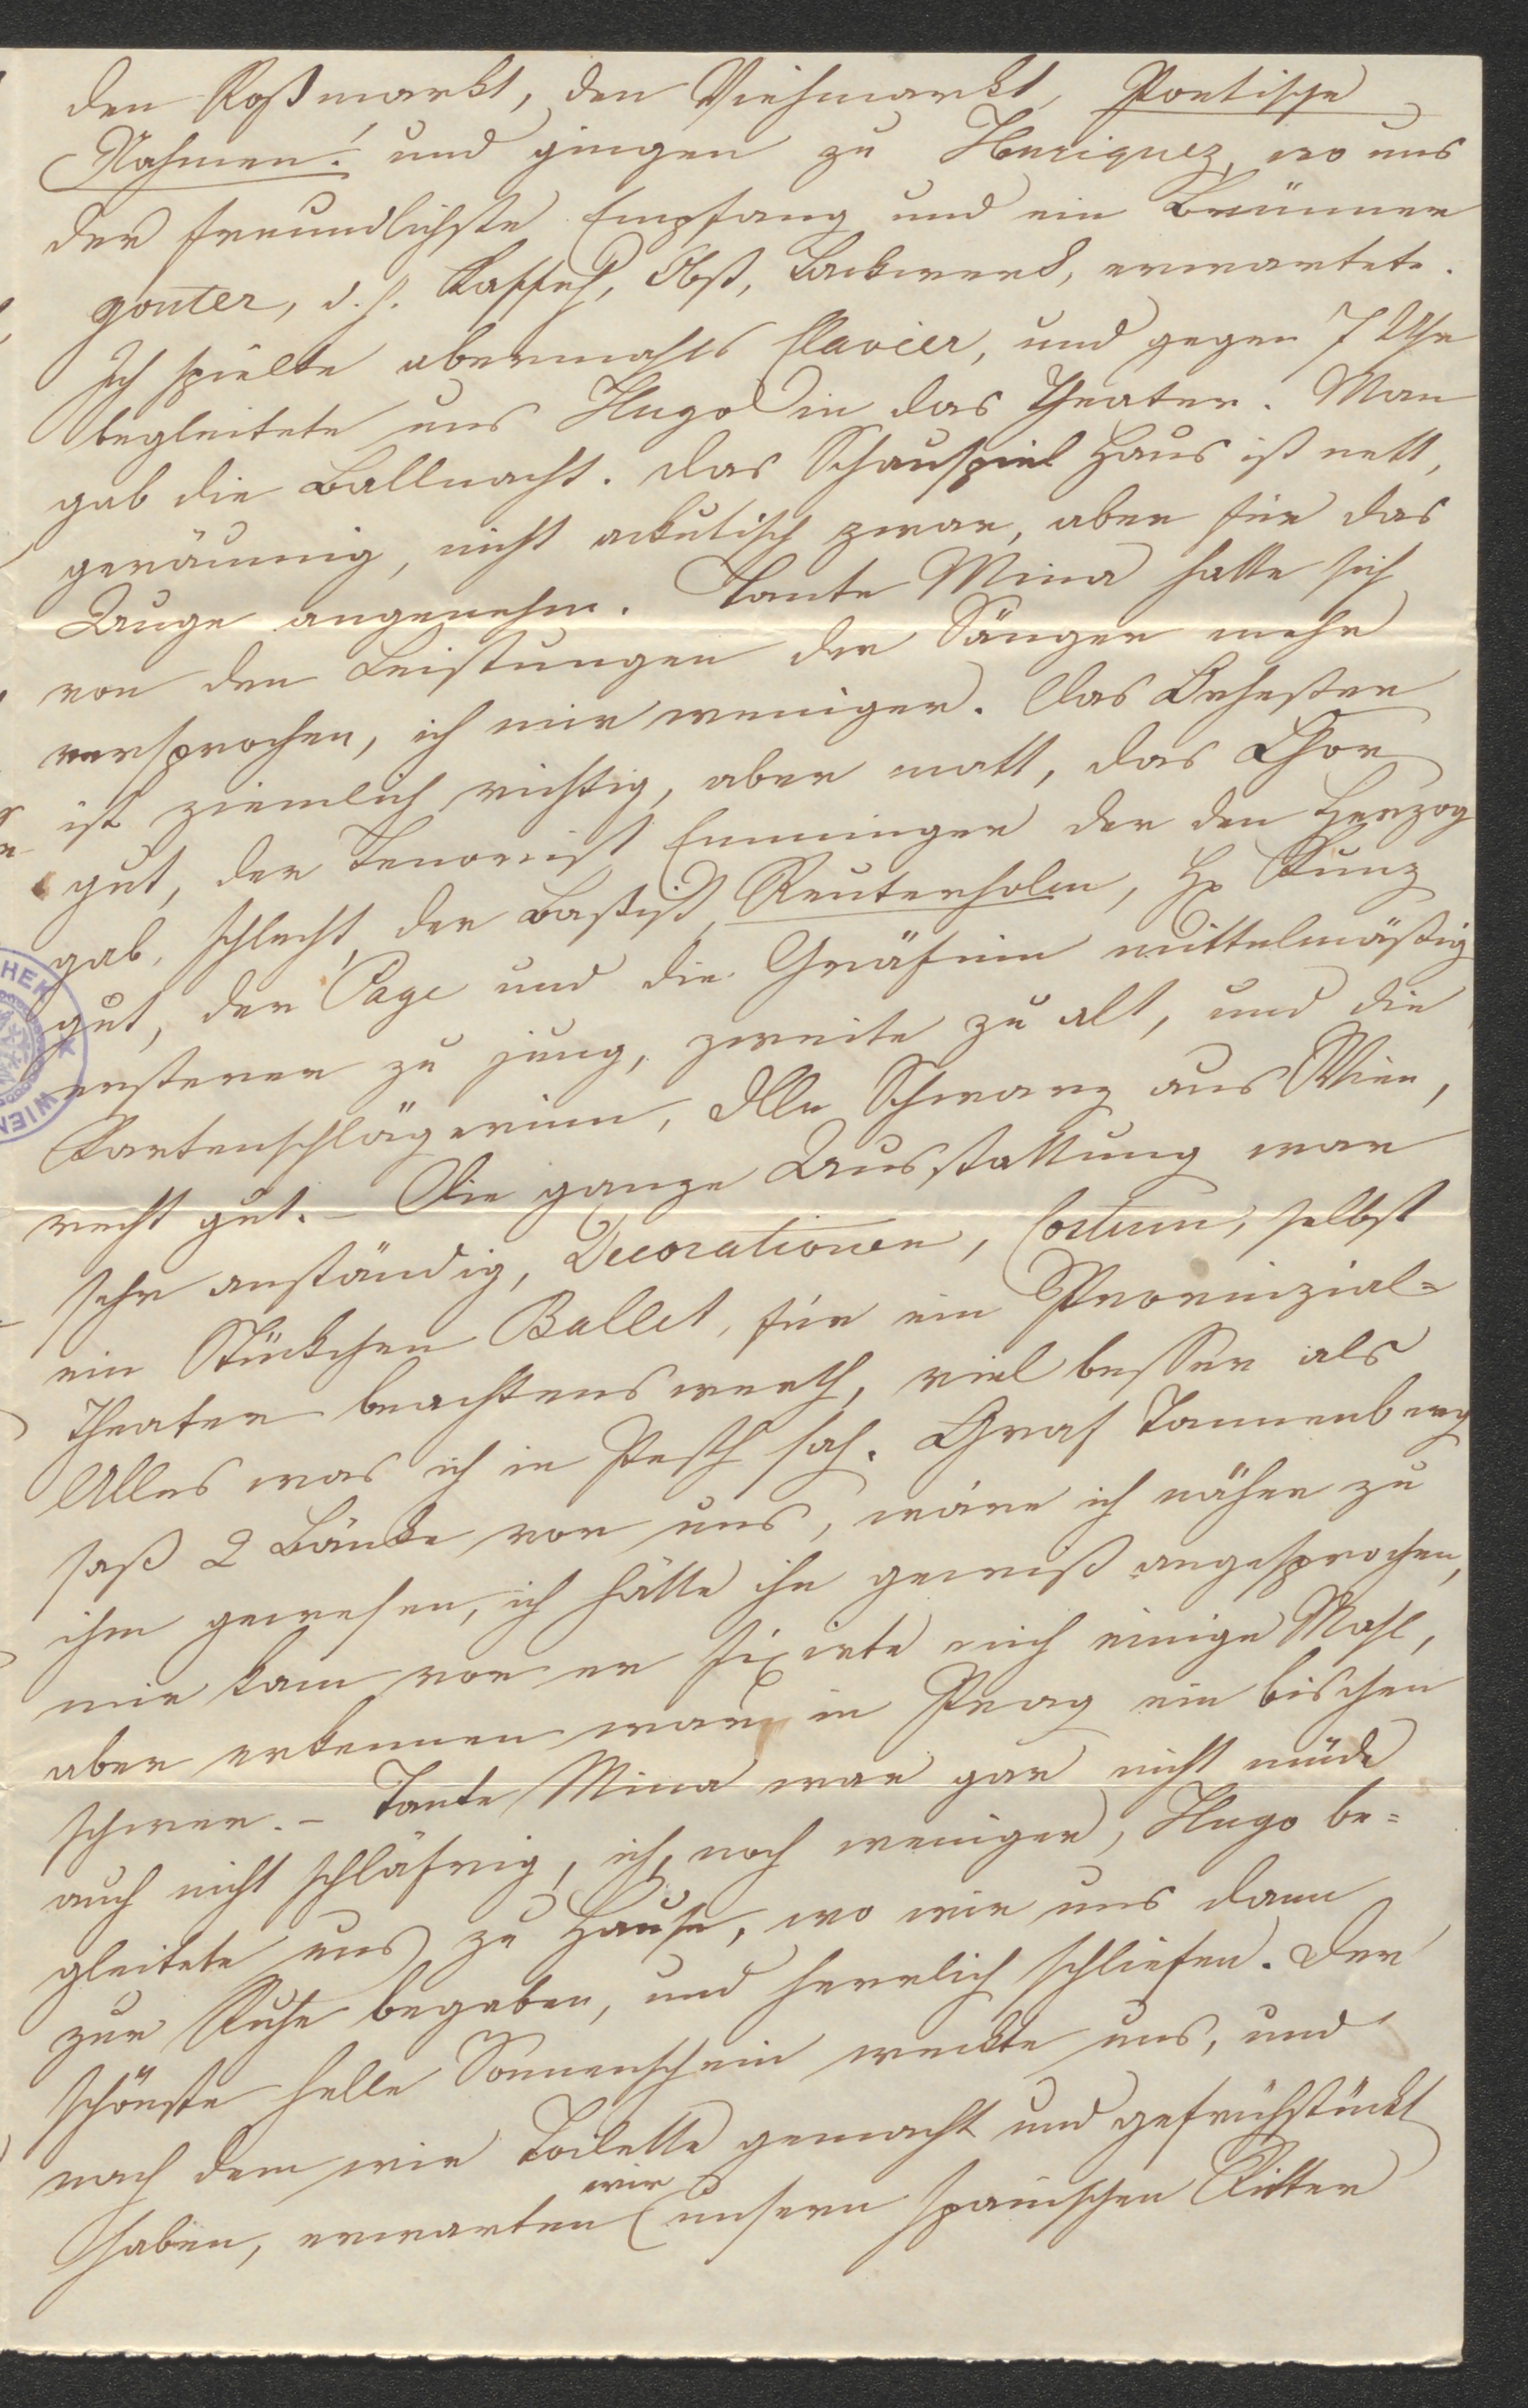 den Roßmarkt, den Viehmarkt, Poetische
Nahmen! und gingen zu Henriquez, wo uns
der freundlichste Empfang und ein Brünner
gouter, d. h. Kaffeh, Obst, Backwerk, erwartete.
Ich spielte abermahls Clavier, und gegen 7 Uhr
begleitete uns Hugo in das Theater. Man
gab die Ballnacht. Das Schauspiel Haus ist nett,
geräumig, nicht akutisch zwar, aber für das
Auge angenehm. Tante Mina hatte sich
von den Leistungen der Sänger mehr
versprochen, ich mir weniger. Das Orhester
ist ziemlich richtig, aber matt, das Chor
gut, der Tenorist Emminger der den Herzog
gab, schlecht, der Bassist, Reuterholm, H Kunz
gut, der Page und die Gräfinn mittelmäßig
ersterer zu jung, zweite zu alt, und die
Kartenschlägerinn, Dlle Schwarz aus Wien,
recht gut. – Die ganze Ausstattung war
sehr anständig, Decorationen, Costum, selbst
ein Stückchen Ballet, für ein Provinzial=
Theater beachtenswerth, viel besser als
Alles was ich in Pesth sah. Graf Tannenberg
saß 2 Bänke vor uns, wäre ich näher zu
ihm gewesen, ich hätte ihn gewiß angesprochen,
mir kam vor er fixirte mich einige Mahl,
aber erkennen war in Prag ein bischen
schwer. – Tante Mina war gar nicht müde
auch nicht schläfrig, ich noch weniger, Hugo be=
gleitete uns zu Hause, wo wir uns dann
zur Ruhe begaben, und herrlich schliefen. Der
schönste helle Sonnenschein weckte uns, und
nach dem wir Toilette gemacht und gefrühstückt
haben, erwarten wir unsern spanischen Ritter
HEK
WIEN